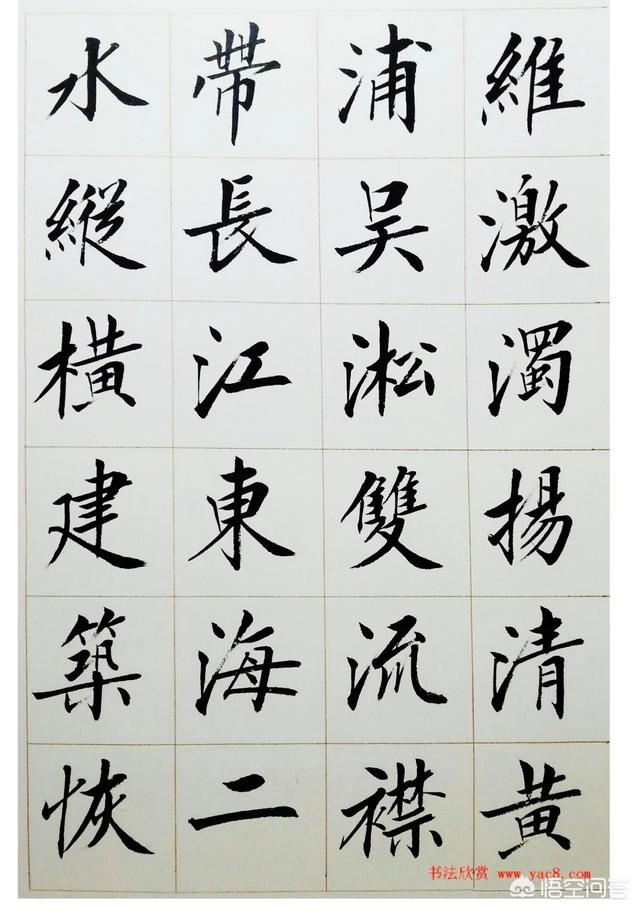 維激濁揚清黃
浦吴淞雙流襟
帶長江東海二
水縱橫建築恢
书法欣赏 www.yac8.com
悟空问答